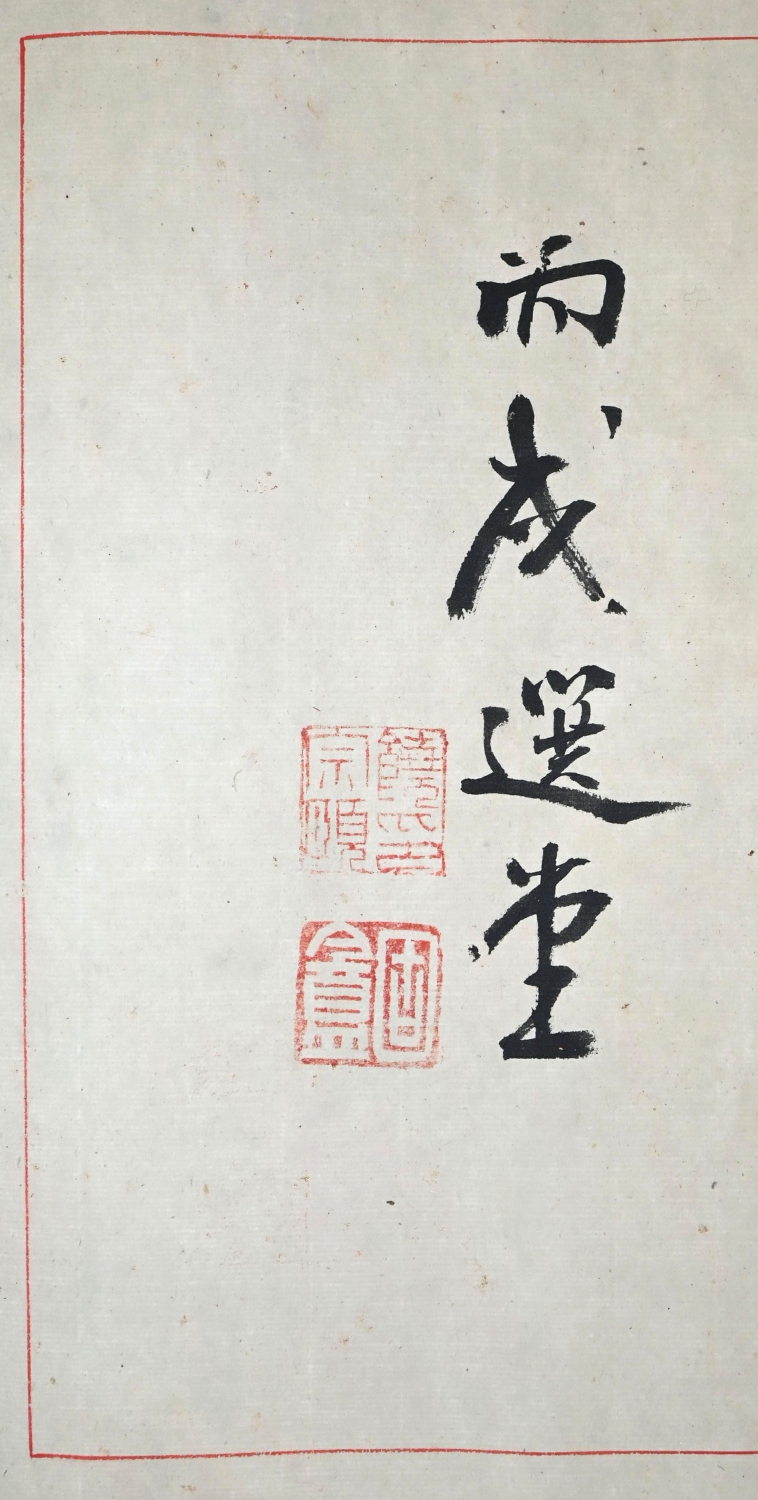 丙戌選堂
饒氏宗頤
固盦